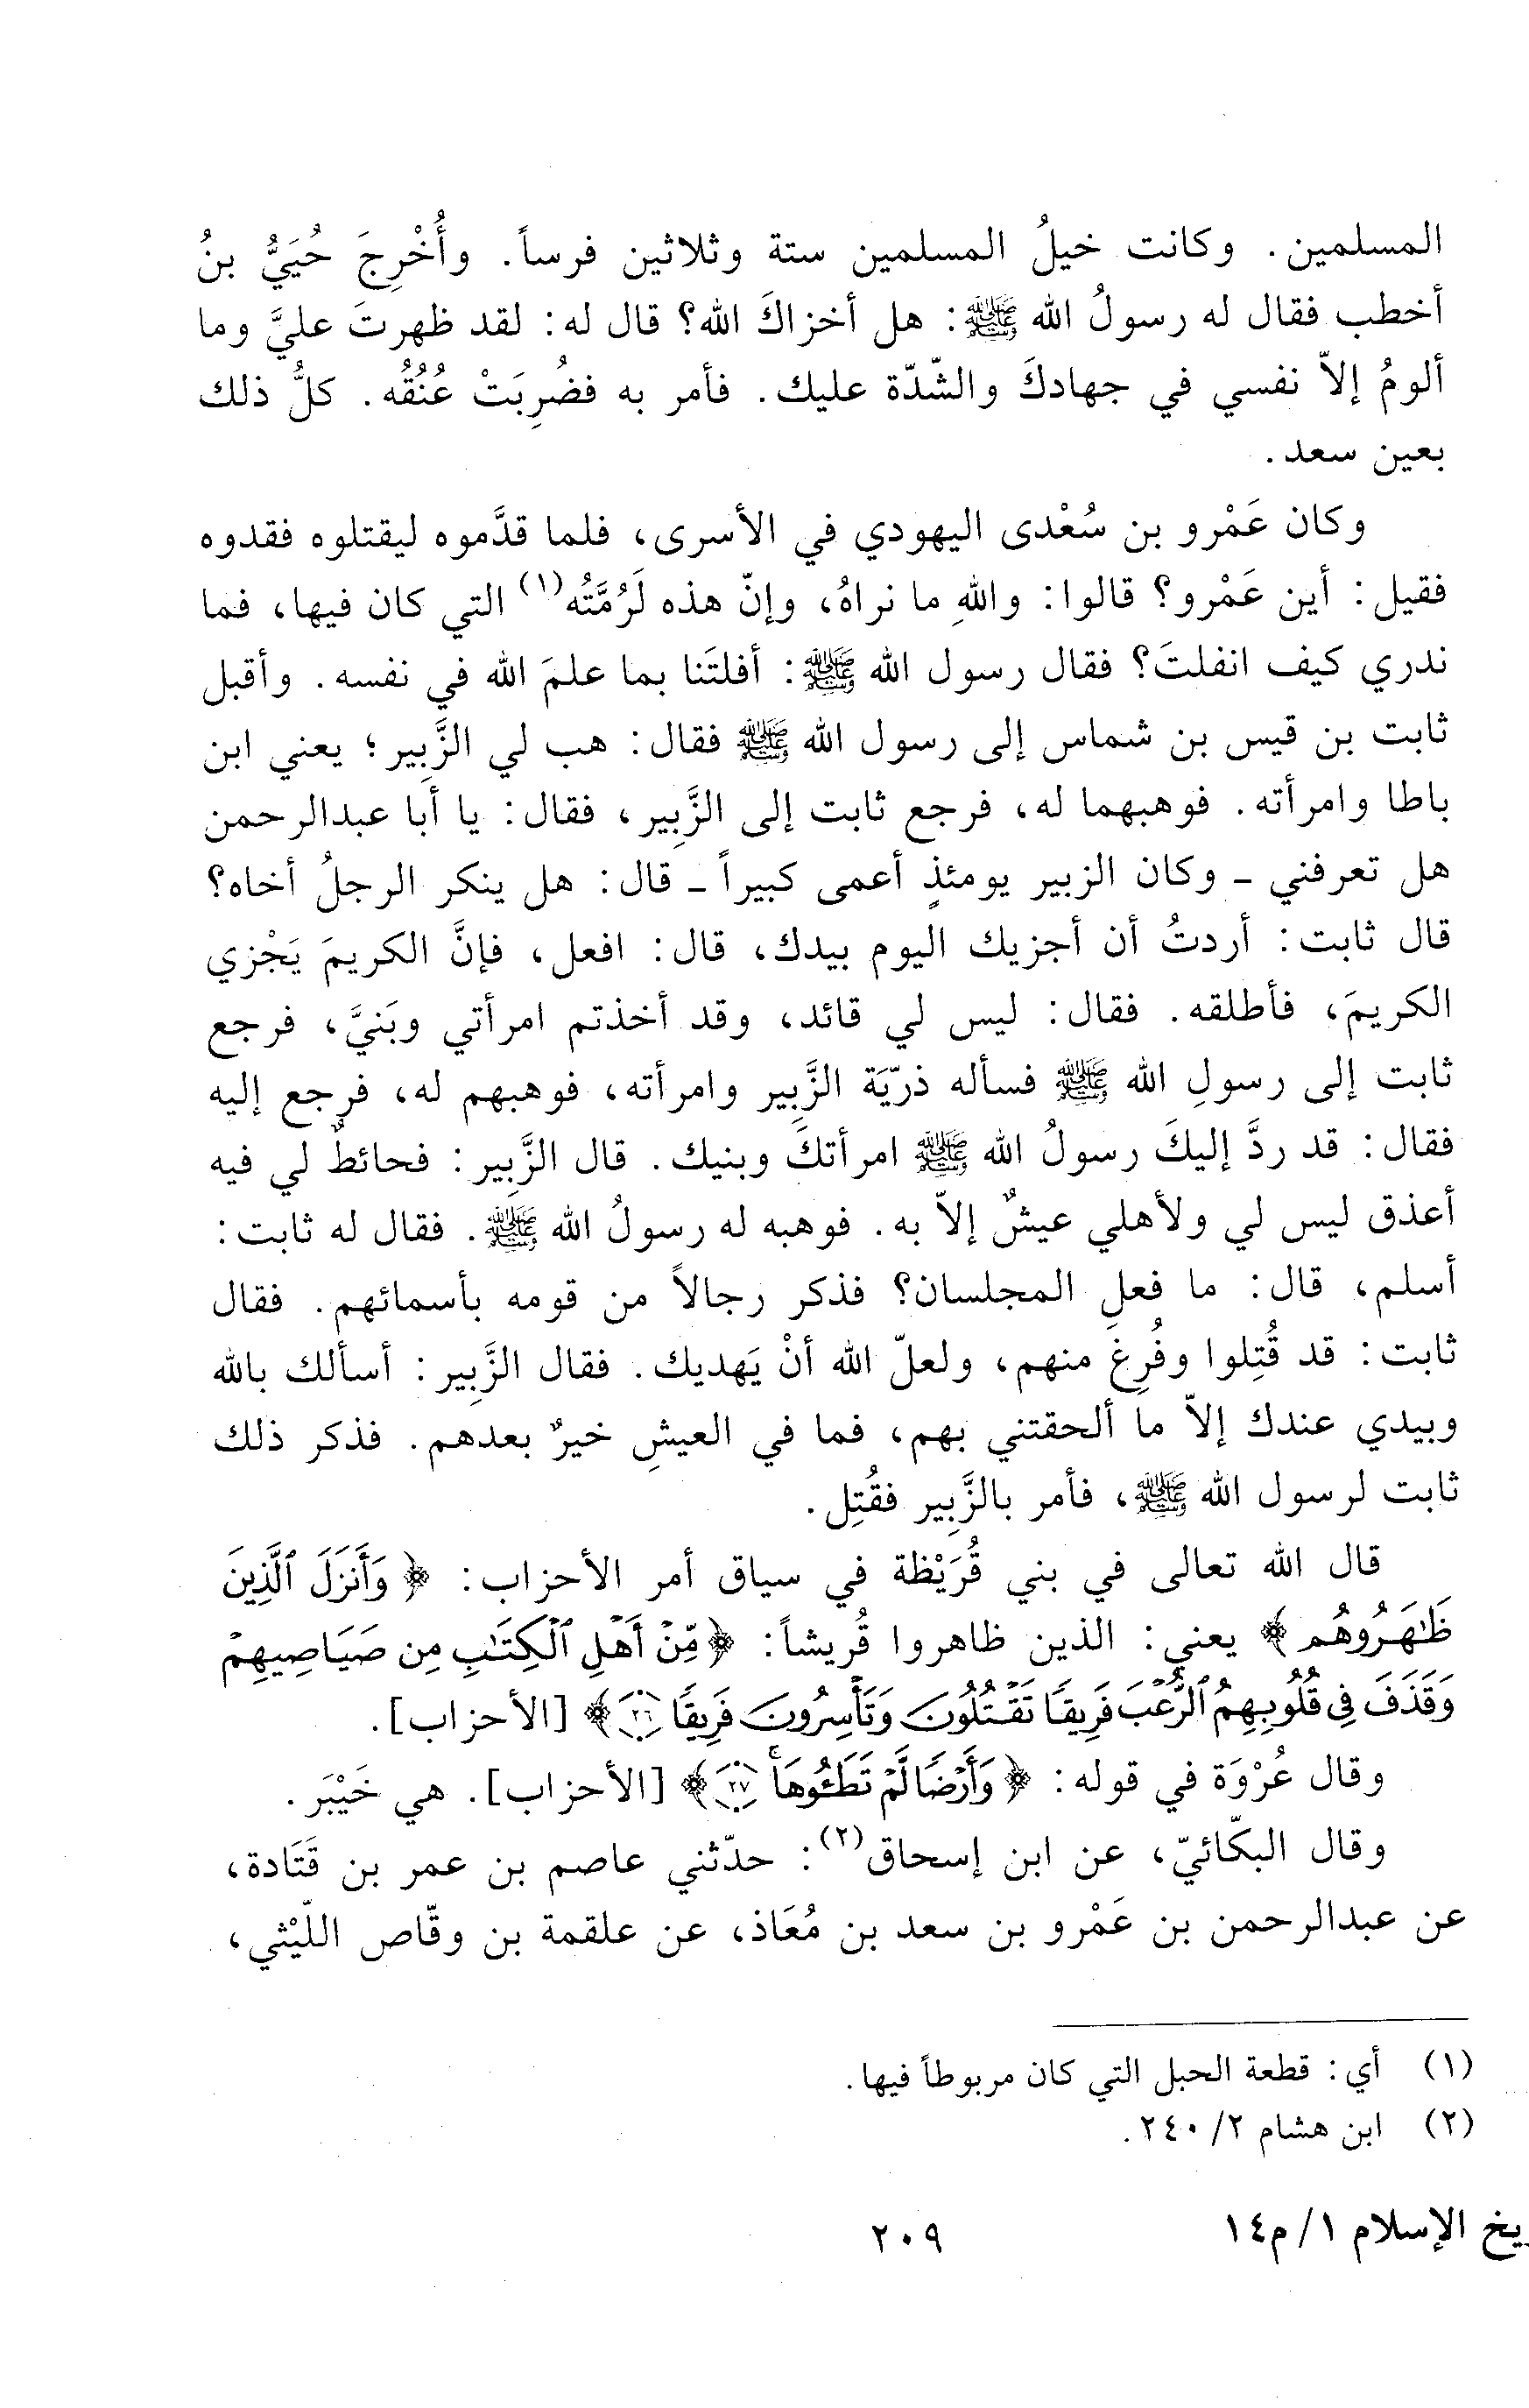 المسلمين. وكانت خيلُ المسلمين ستة وثلاثين فرساً. وأُخْرِجَ حُيَيُّ بنُ
أخطب فقال له رسولُ الله ﷺ: هل أخزاكَ الله؟ قال له: لقد ظهرتَ عليَّ وما
ألومُ إلاّ نفسي في جهادكَ والشّدّة عليك. فأمر به فضُرِبَتْ عُنُقُه. كلُّ ذلك
بعين سعد.
وكان عَمْرو بن سُعْدى اليهودي في الأسرى، فلما قدَّموه ليقتلوه فقدوه
فقيل: أين عَمْرو؟ قالوا: واللهِ ما نراهُ، وإنّ هذه لَرُمَّتُه(١) التي كان فيها، فما
ندري كيف انفلتَ؟ فقال رسول الله ﷺ: أفلتَنا بما علمَ الله في نفسه. وأقبل
ثابت بن قيس بن شماس إلى رسول الله ﷺ فقال: هب لي الزَّبِير؛ يعني ابن
باطا وامرأته. فوهبهما له، فرجع ثابت إلى الزَّبِير، فقال: يا أبا عبدالرحمن
هل تعرفني ـ وكان الزبير يومئذٍ أعمى كبيراً ـ قال: هل ينكر الرجلُ أخاه؟
قال ثابت: أردتُ أن أجزيك اليوم بيدك، قال: افعل، فإنَّ الكريمَ يَجْزي
الكريمَ، فأطلقه. فقال: ليس لي قائد، وقد أخذتم امرأتي وبَنيَّ، فرجع
ثابت إلى رسولِ الله ﷺ فسأله ذرّيَة الزَّبِير وامرأته، فوهبهم له، فرجع إليه
فقال: قد ردَّ إليكَ رسولُ الله ﷺ امرأتكَ وبنيك. قال الزَّبِير: فحائطٌ لي فيه
أعذق ليس لي ولأهلي عيشٌ إلاّ به. فوهبه له رسولُ الله ﷺ. فقال له ثابت:
أسلم، قال: ما فعل المجلسان؟ فذكر رجالاً من قومه بأسمائهم. فقال
ثابت: قد قُتِلوا وفُرِغَ منهم، ولعلّ الله أنْ يَهديك. فقال الزَّبِير: أسألك بالله
وبيدي عندك إلاّ ما ألحقتني بهم، فما في العيشِ خيرٌ بعدهم. فذكر ذلك
ثابت لرسول الله ﷺ، فأمر بالزَّبِير فقُتِل.
قال الله تعالى في بني قُرَيْظة في سياق أمر الأحزاب: ﴿وَأَنزَلَ ٱلَّذِينَ
ظَٰهَرُوهُم﴾ يعني: الذين ظاهروا قُريشاً: ﴿مِّنْ أَهْلِ ٱلْكِتَٰبِ مِن صَيَاصِيهِمْ
وَقَذَفَ فِى قُلُوبِهِمُ ٱلرُّعْبَ فَرِيقًا تَقْتُلُونَ وَتَأْسِرُونَ فَرِيقًا ٢٦﴾ [الأحزاب].
وقال عُرْوَة في قوله: ﴿وَأَرْضًا لَّمْ تَطَـُٔوهَا ۚ ٢٧﴾ [الأحزاب]. هي خَيْبَر.
وقال البكّائيّ، عن ابن إسحاق(٢): حدّثني عاصم بن عمر بن قَتَادة،
عن عبدالرحمن بن عَمْرو بن سعد بن مُعَاذ، عن علقمة بن وقّاص اللّيْثي،
(١) أي: قطعة الحبل التي كان مربوطاً فيها.
(٢) ابن هشام ٢/ ٢٤٠.
ريخ الإسلام ١/ م١٤
٢٠٩